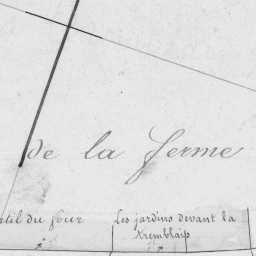 de la ferme
du four
Les jardins devant la
Kremblais